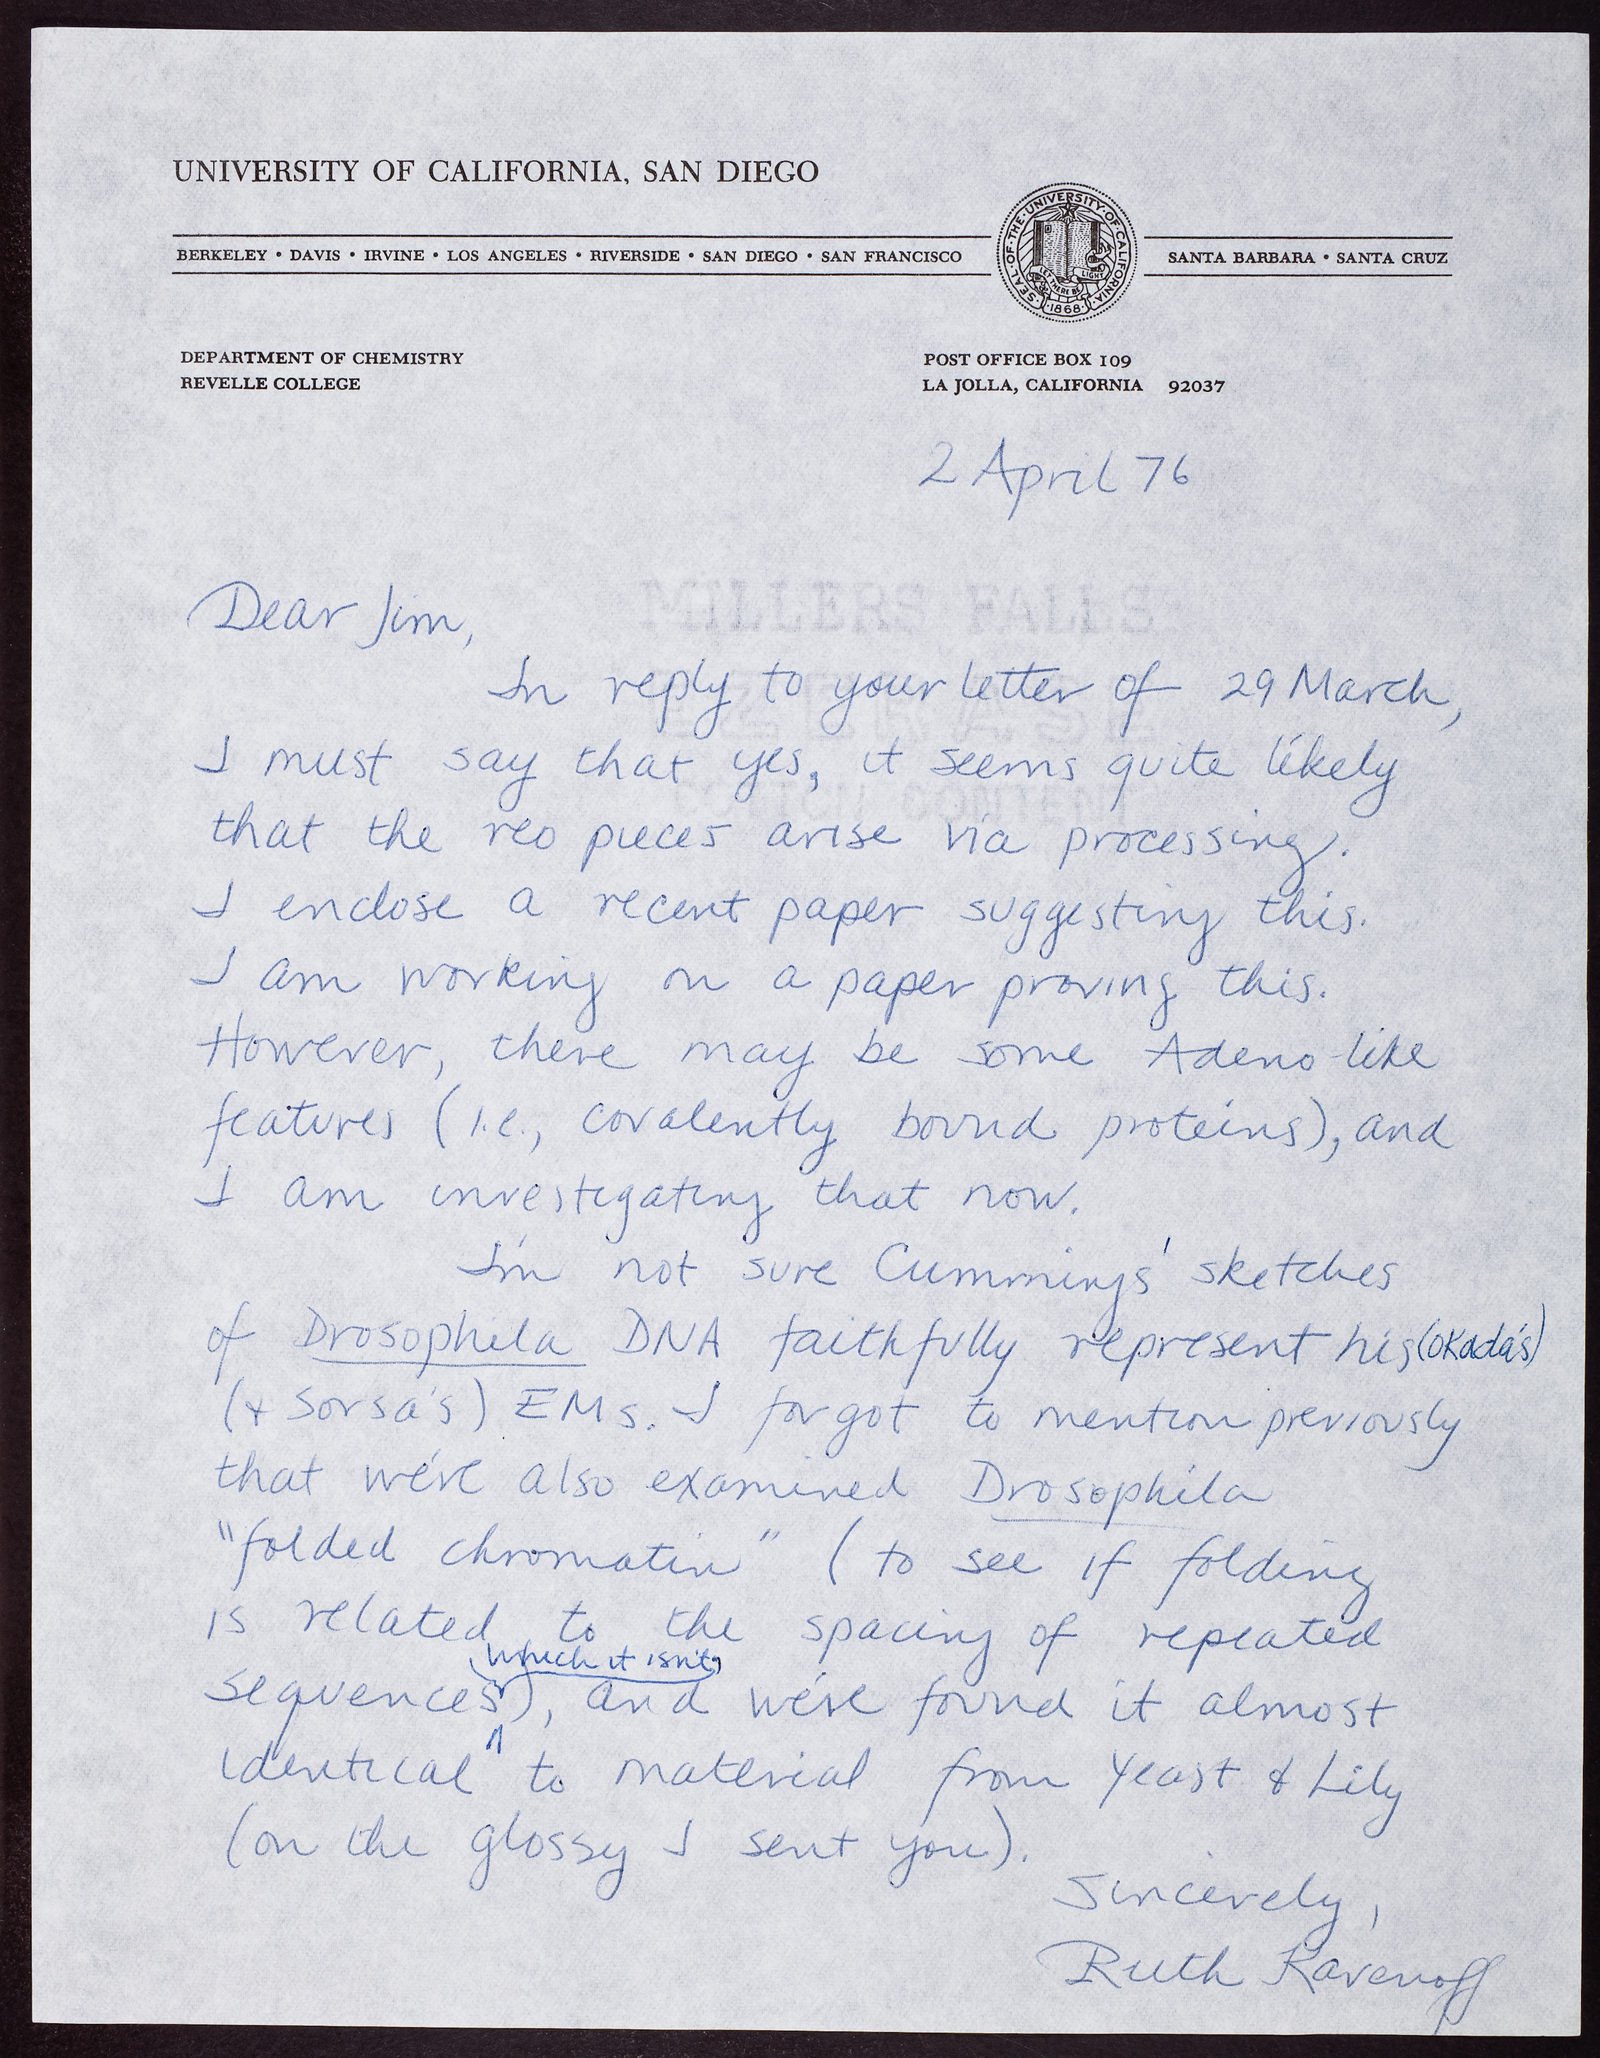 UNIVERSITY OF CALIFORNIA, SAN DIEGO
BERKELEY • DAVIS • IRVINE • LOS ANGELES • RIVERSIDE • SAN DIEGO • SAN FRANCISCO
SEAL OF THE UNIVERSITY OF CALIFORNIA
LET THERE BE LIGHT
1868
SANTA BARBARA • SANTA CRUZ
DEPARTMENT OF CHEMISTRY
REVELLE COLLEGE
POST OFFICE BOX 109
LA JOLLA, CALIFORNIA 92037
2 April 76
MILLERS FALLS
Dear Jim,
In reply to your letter of 29 March,
I must say that yes, it seems quite likely
that the reo pieces arise via processing.
I enclose a recent paper suggesting this.
I am working on a paper proving this.
However, there may be some Adeno-like
features (i.e., covalently bound proteins), and
I am investigating that now.
I'm not sure Cummings' sketches
of Drosophila DNA faithfully represent his (Okada's)
(& Sorsa's) EMs. I forgot to mention previously
that we've also examined Drosophila
"folded chromatin" (to see if folding
is related to the spacing of repeated
which it isn't,
sequences), and we've found it almost
identical to material from Yeast & Lily
(on the glossy I sent you).
Sincerely,
Ruth Kavenoff